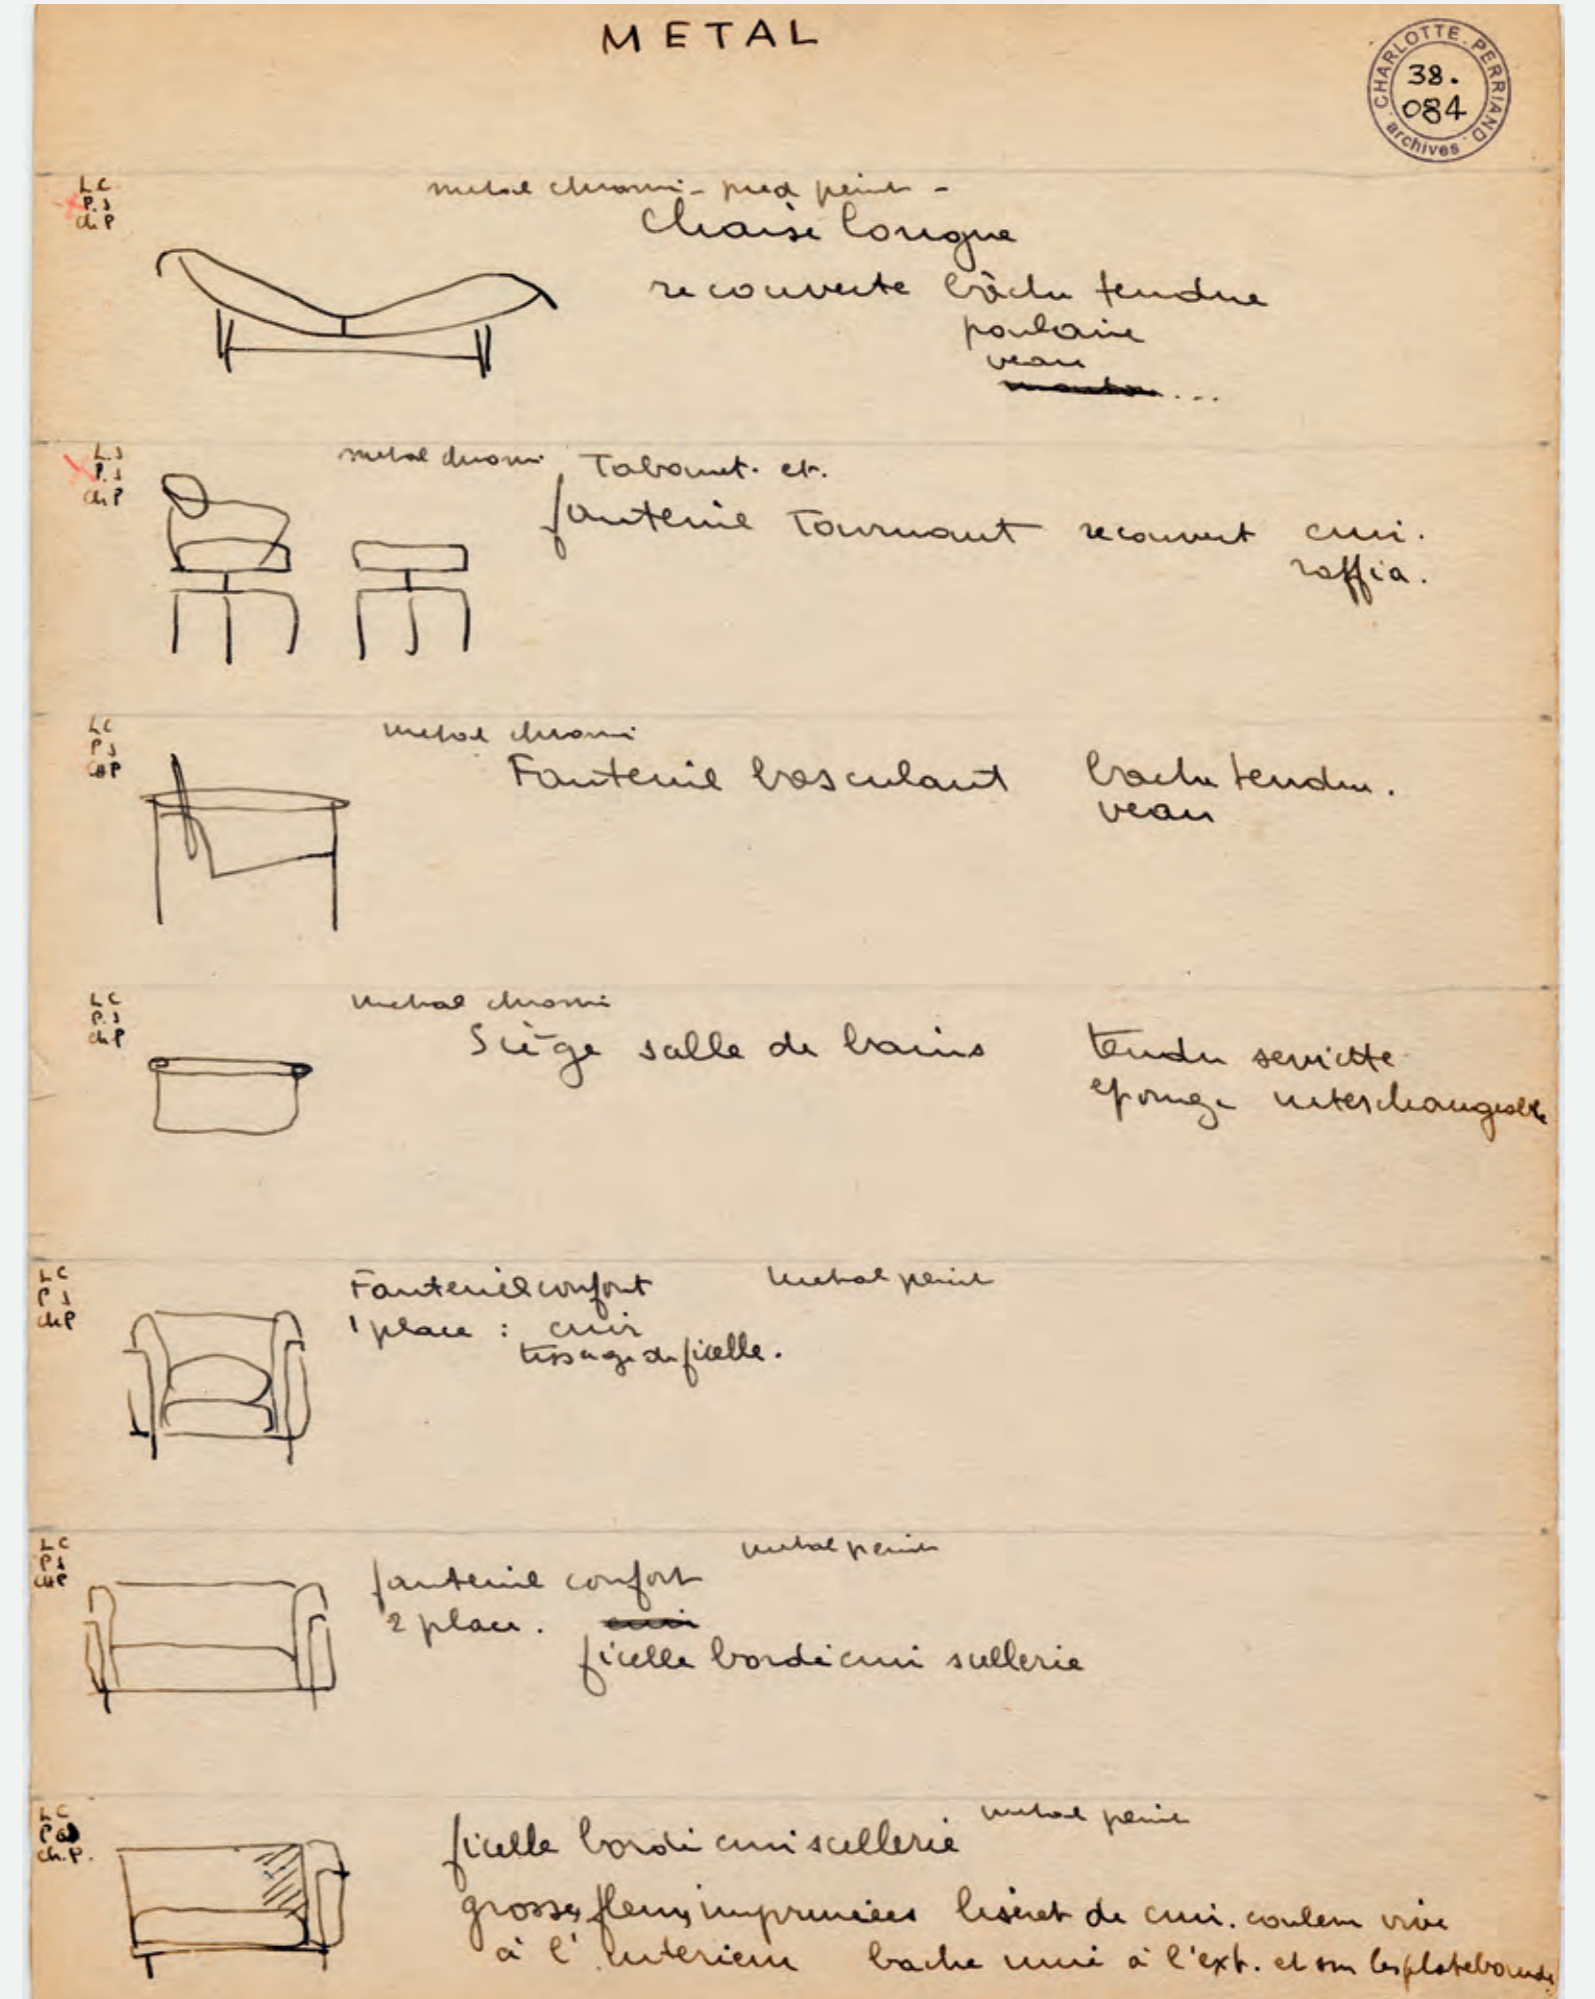 METAL
CHARLOTTE PERRIAND archives
38.
084
LC
P.J
Ch P
metal chromé - pied peint -
Chaise longue
recouverte bâche tendue
poulain
veau
...
L.J
P.J
Ch P
metal chromé Tabouret. et.
fauteuil Tournant recouvert cuir.
raffia.
LC
PJ
CHP
metal chromé
Fauteuil basculant bache tendu.
veau
LC
P.J
Ch P
metal chromé
Siège salle de bains tendu serviette
eponge interchangeable
LC
PJ
Ch P
Fauteuil confort metal peint
1 place : cuir
tissage de ficelle.
LC
PJ
CHP
metal peint
fauteuil confort
2 place. cuir
ficelle bordé cuir sellerie
LC
Ch.P.
metal peint
ficelle bordé cuir scellerie
grosses fleurs imprimées liseret de cuir. couleur vive
à l'interieur bache unie à l'ext. et sur les platebandes